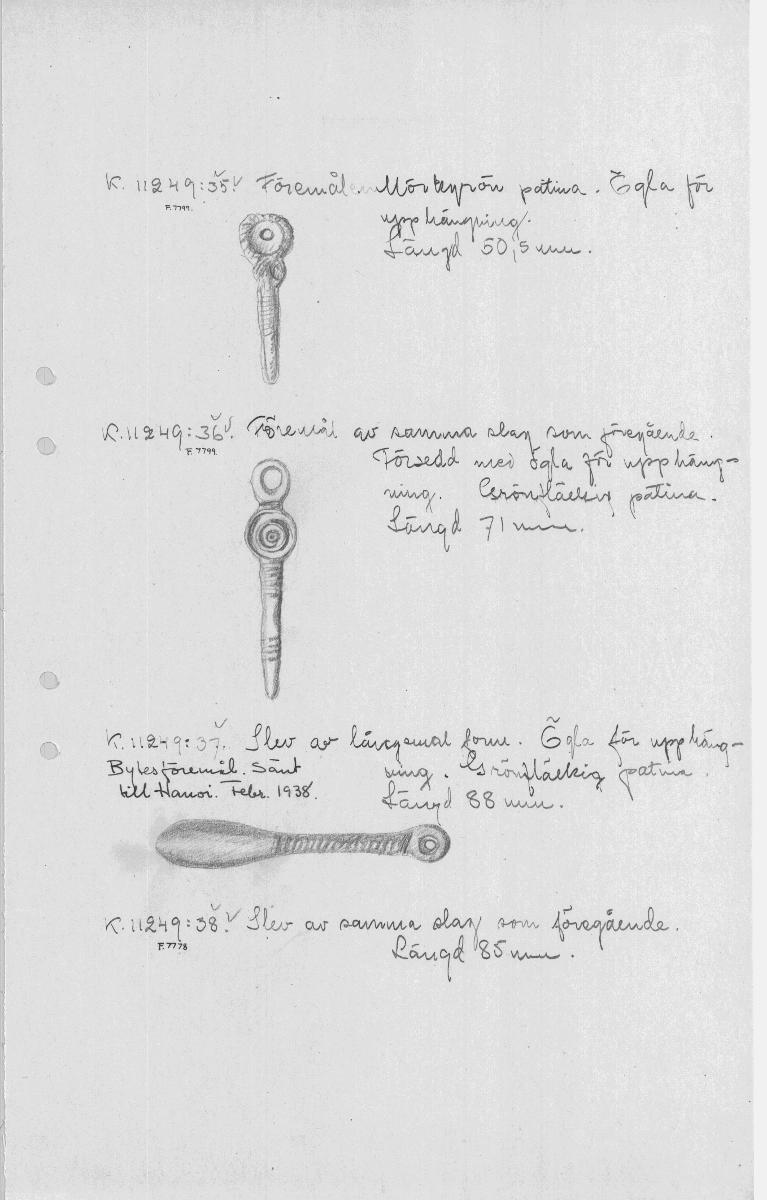 K. 11249:35. Föremål. Mörkgrön patina. Ögla för
F. 7799.
upphängning.
Längd 50,5 mm.
K. 11249:36. Föremål av samma slag som föregående.
F. 7799.
Försedd med ögla för upphäng-
ning. Grönfläckig patina.
Längd 71 mm.
K. 11249:37. Slev av långsmal form. Ögla för upphäng-
Bytesföremål. Sänt
ning. Grönfläckig patina.
till Hanoi. Febr. 1938.
Längd 88 mm.
K. 11249:38. Slev av samma slag som föregående.
F. 7778
Längd 85 mm.